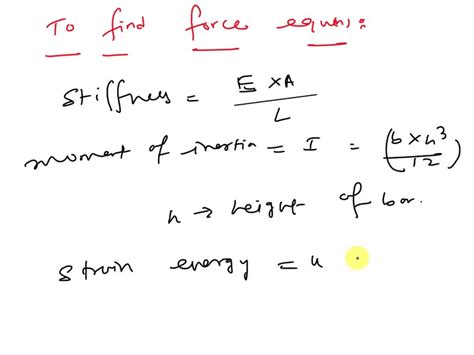 To find force equns:
Stiffness = E × A / L
moment of inertia = I = (b × h³ / 12)
h → height of bar.
Strain energy = u